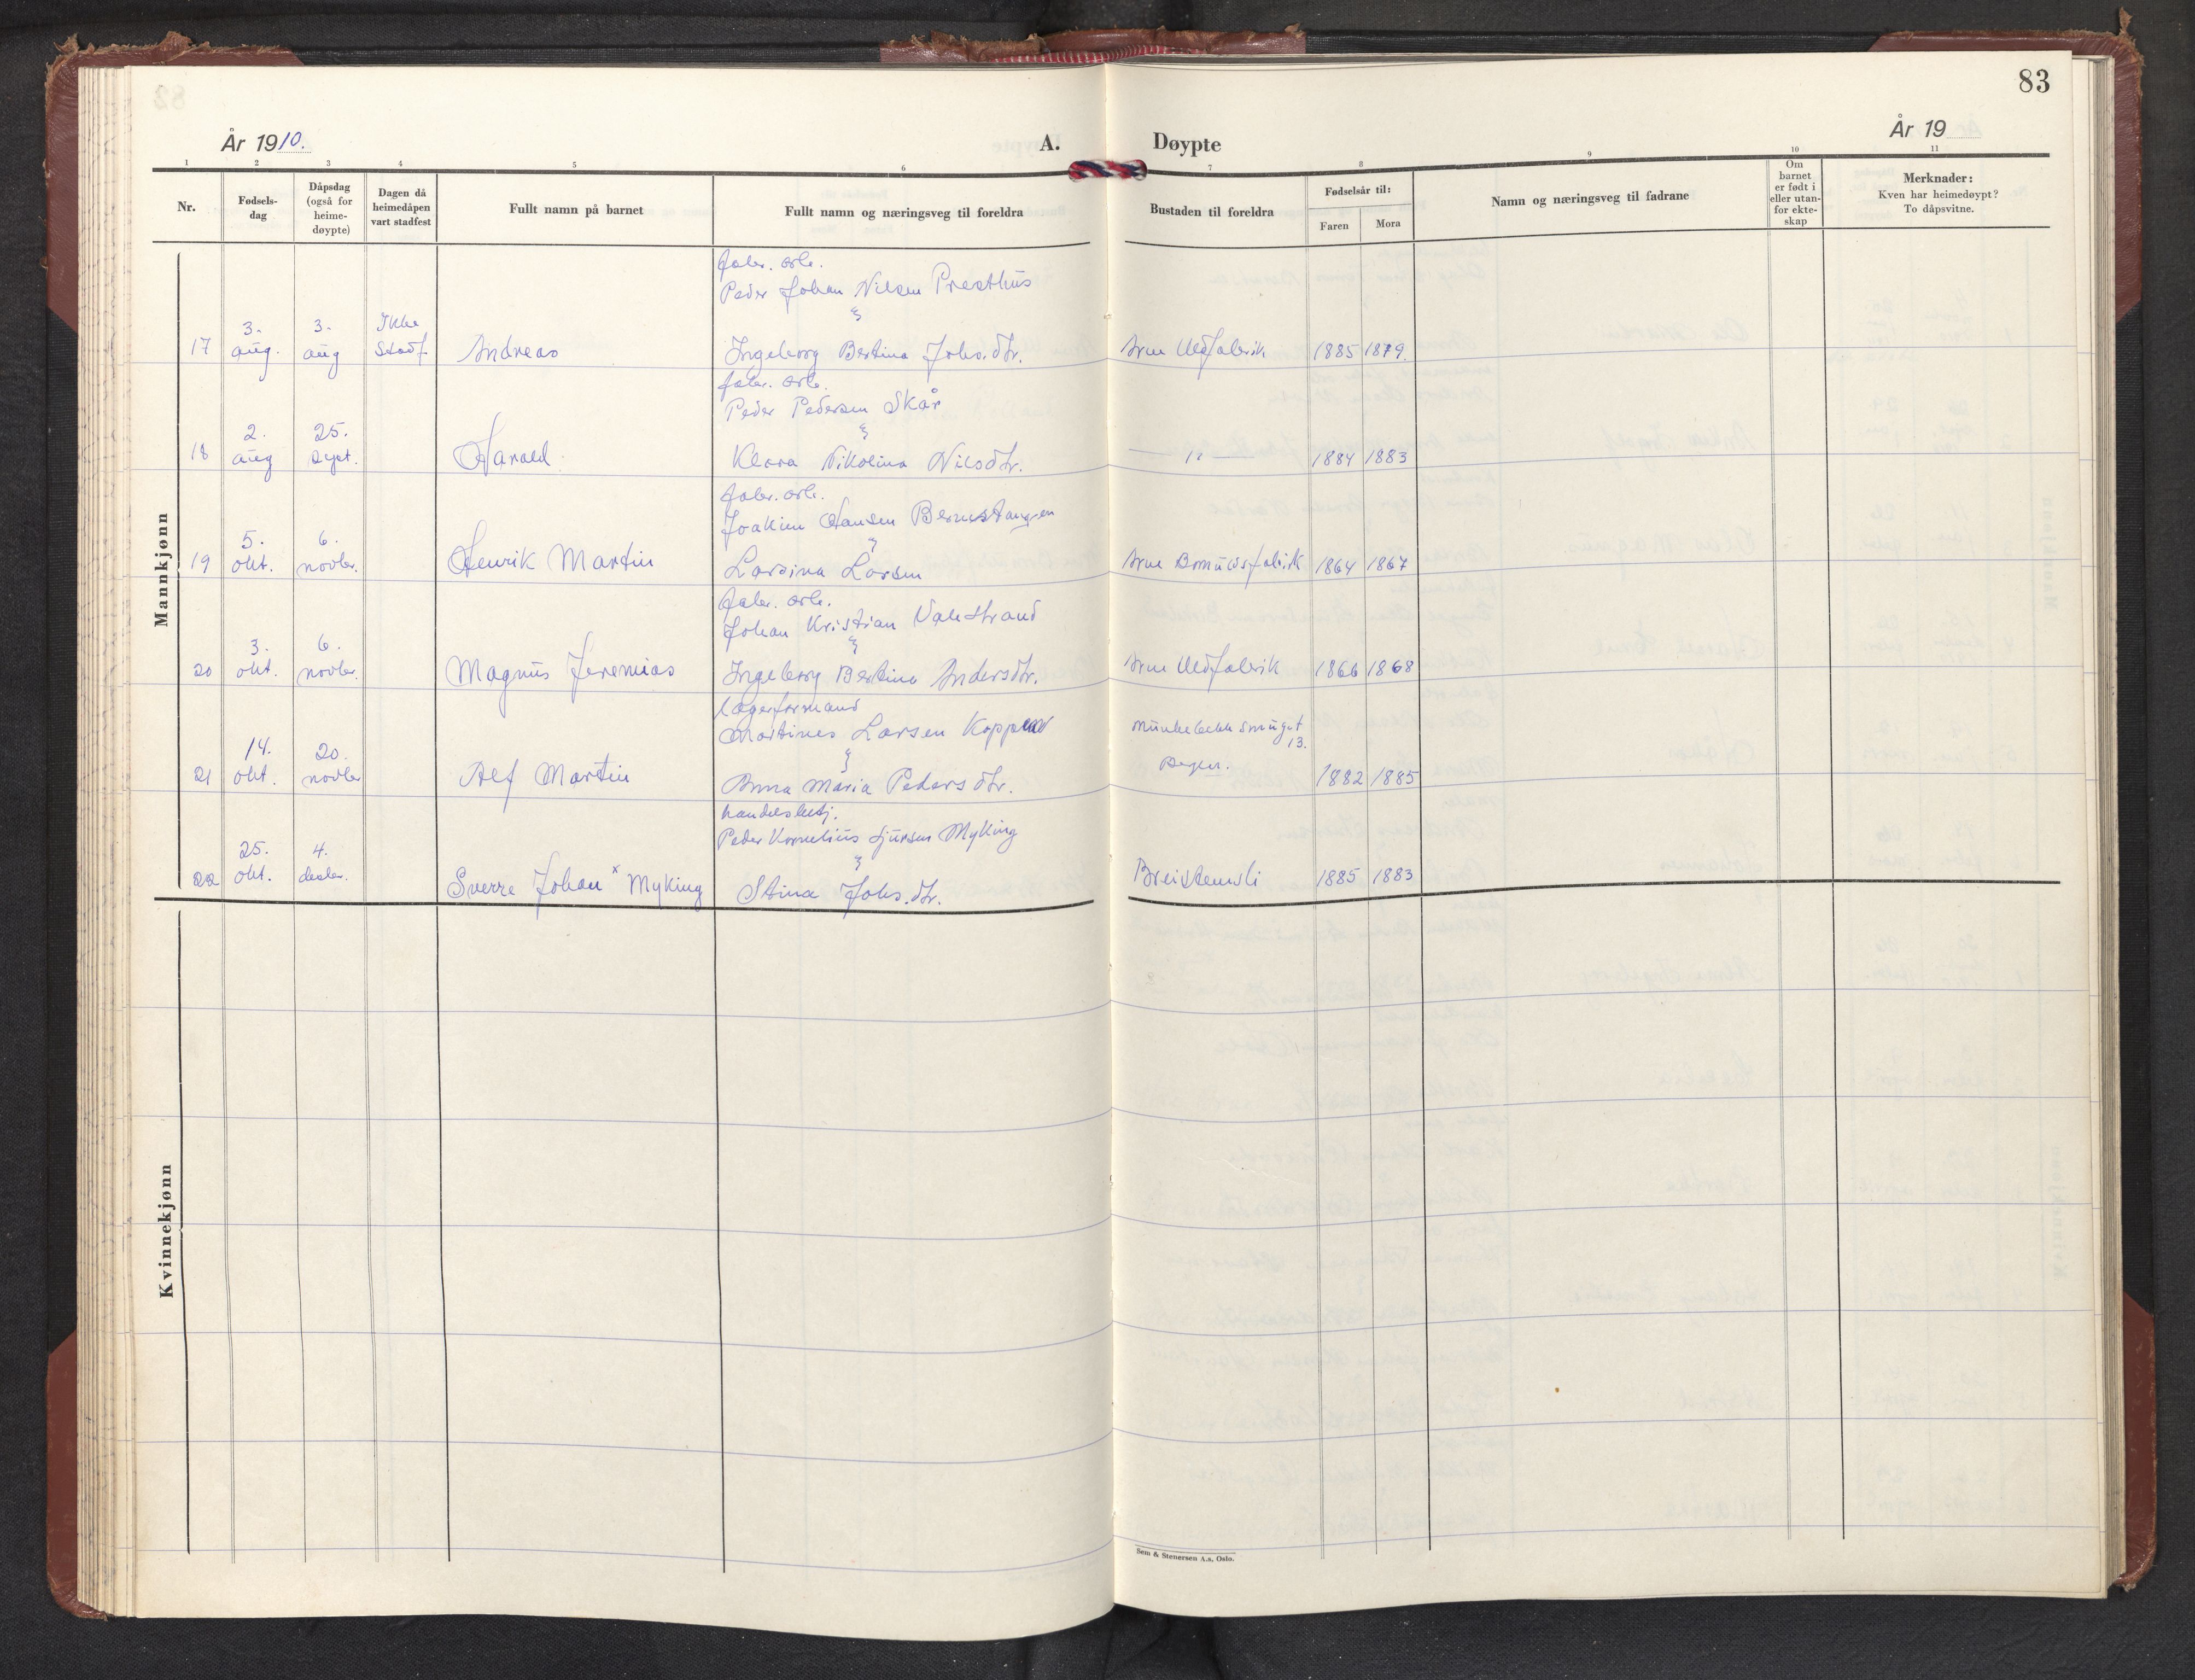 83
År 1910.
A. Døypte
År 19
1 2 3 4 5 6 7 8 9 10 11
Nr.
Fødsels-
dag
Dåpsdag
(også for
heime-
døypte)
Dagen då
heimedåpen
vart stadfest
Fullt namn på barnet
Fullt namn og næringsveg til foreldra
Bustaden til foreldra
Fødselsår til:
Faren Mora
Namn og næringsveg til fadrane
Om
barnet
er født i
eller utan-
for ekte-
skap
Merknader:
Kven har heimedøypt?
To dåpsvitne.
Mannkjønn
fabr. arb.
Peder Johan Nilsen Presthus
&
17 3. aug. 3. aug Ikke Stadf. Andreas Ingeborg Bertina Johs.dtr. Arne Uldfabrik 1885 1879.
fabr. arb.
Peder Pedersen Skår
&
18 2. aug 25. sept. Harald Klara Nikolina Nilsdtr. — " — 1884 1883
fabr. arb.
Joakim Hansen Bernstangen
&
19 5. okt. 6. novbr. Henrik Martin Larsina Larsen Arne Bomuldsfabrik 1864 1867
fabr. arb.
Johan Kristian Valestrand
&
20 3. okt. 6. novbr. Magnus Jeremias Ingeborg Bertina Andersdtr. Arne Uldfabrik 1866 1868
lagerformand
Martines Larsen
&
Munkebekksmuget
13.
21 14. okt. 20. novbr Alf Martin Anna Maria Pedersdtr. Bergen. 1882 1885
handelsbetj.
Peder Kornelius Sjursen Myking
&
22 25. okt. 4. decbr. Sverre Johan x Myking Stina Johs.dtr. Breistensli 1885 1883
Kvinnekjønn
Sem & Stenersen A.s, Oslo.